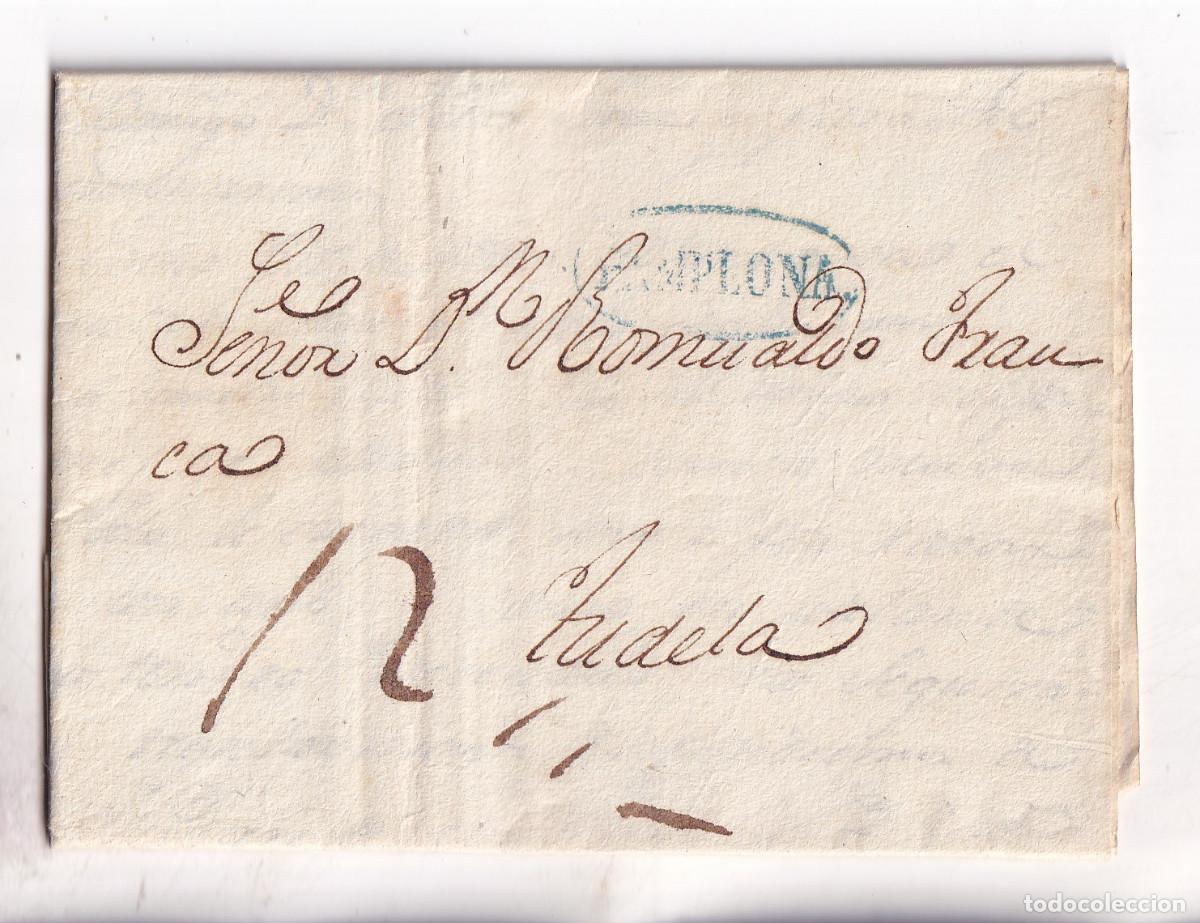 PAMPLONA
Señor D.n Romualdo Fran
ca
12
Tudela
todocoleccion